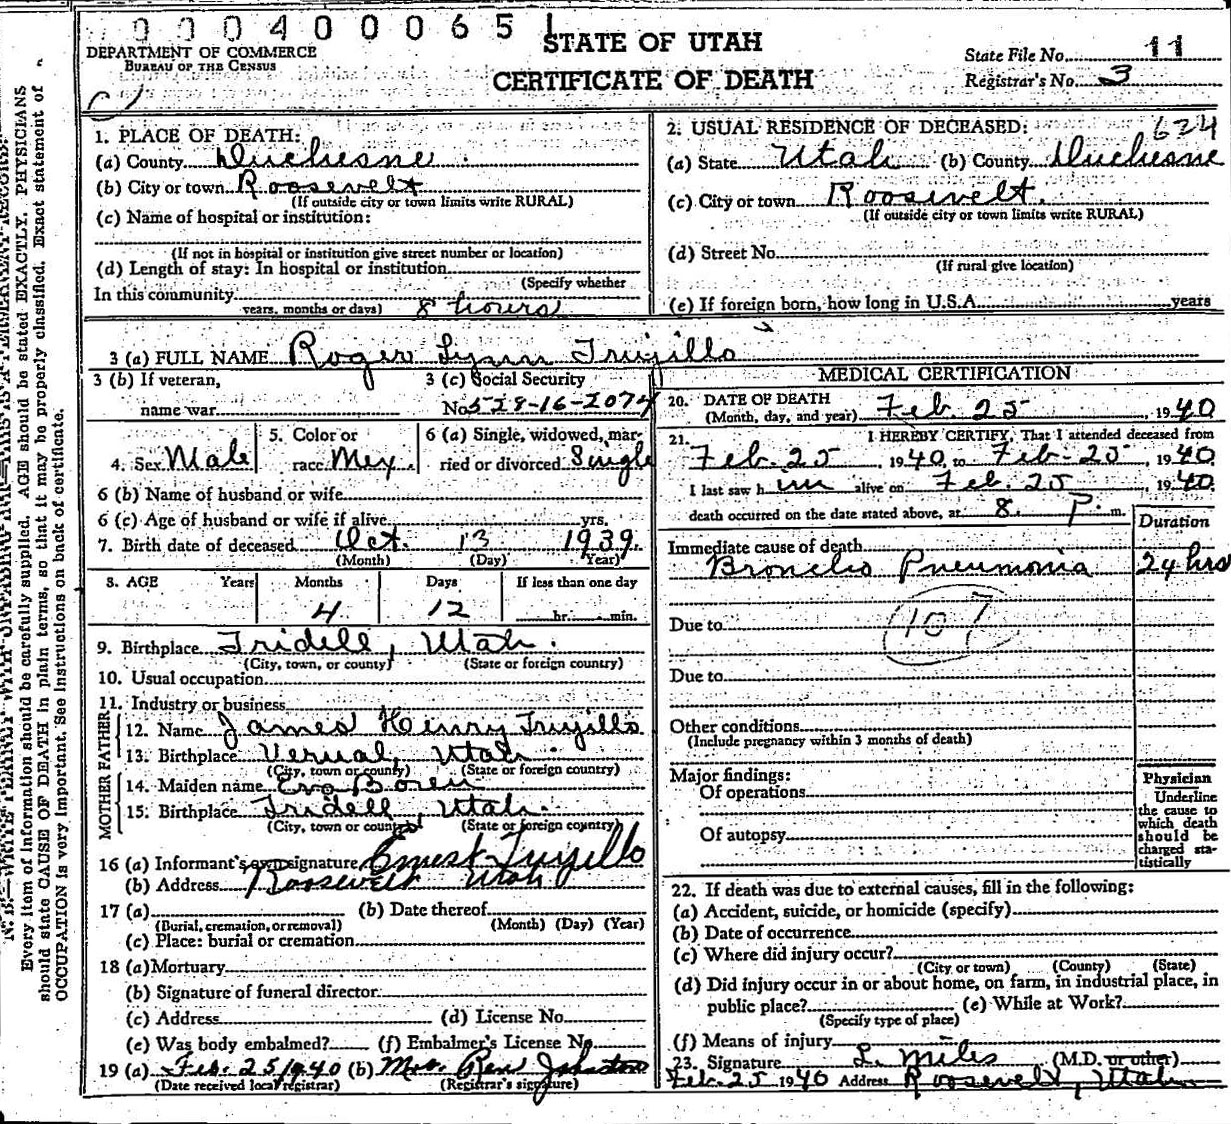 0 0 0 4 0 0 0 6 5 1
STATE OF UTAH
CERTIFICATE OF DEATH
DEPARTMENT OF COMMERCE
BUREAU OF THE CENSUS
State File No. 11
Registrar's No. 3
1. PLACE OF DEATH:
(a) County Duchesne
(b) City or town Roosevelt
(If outside city or town limits write RURAL)
(c) Name of hospital or institution:
(If not in hospital or institution give street number or location)
(d) Length of stay: In hospital or institution
(Specify whether
In this community
years, months or days) 8 hours
2. USUAL RESIDENCE OF DECEASED: 624
(a) State Utah (b) County Duchesne
(c) City or town Roosevelt.
(If outside city or town limits write RURAL)
(d) Street No.
(If rural give location)
(e) If foreign born, how long in U.S.A. years
3 (a) FULL NAME Roger Lynn Trujillo
3 (b) If veteran,
name war
3 (c) Social Security
No. 528-16-2074
4. Sex Male
5. Color or
race Mex.
6 (a) Single, widowed, mar-
ried or divorced Single
6 (b) Name of husband or wife
6 (c) Age of husband or wife if alive yrs.
7. Birth date of deceased Oct. 13 1939.
(Month) (Day) (Year)
8. AGE Years Months Days If less than one day
4 12 hr. min.
9. Birthplace Tridell, Utah.
(City, town, or county) (State or foreign country)
10. Usual occupation
11. Industry or business
FATHER
12. Name James Henry Trujillo
13. Birthplace Vernal, Utah.
(City, town or county) (State or foreign country)
MOTHER
14. Maiden name Eva Boren
15. Birthplace Tridell, Utah.
(City, town or county) (State or foreign country)
16 (a) Informant's own signature Ernest Trujillo
(b) Address Roosevelt Utah
17 (a) (b) Date thereof
(Burial, cremation, or removal) (Month) (Day) (Year)
(c) Place: burial or cremation
18 (a) Mortuary
(b) Signature of funeral director
(c) Address (d) License No.
(e) Was body embalmed? (f) Embalmer's License No.
19 (a) Feb. 25/1940 (b) Mrs. Rex Johnston
(Date received local registrar) (Registrar's signature)
MEDICAL CERTIFICATION
20. DATE OF DEATH
(Month, day, and year) Feb. 25, 1940
21. I HEREBY CERTIFY, That I attended deceased from
Feb. 25, 1940, to Feb-25, 1940.
I last saw him alive on Feb. 25, 1940.
death occurred on the date stated above, at 8. P. m.
Duration
Immediate cause of death
Broncho Pneumonia 24 hrs
107
Due to
Due to
Other conditions
(Include pregnancy within 3 months of death)
Major findings:
Of operations
Of autopsy
Physician
Underline
the cause to
which death
should be
charged sta-
tistically
22. If death was due to external causes, fill in the following:
(a) Accident, suicide, or homicide (specify)
(b) Date of occurrence
(c) Where did injury occur?
(City or town) (County) (State)
(d) Did injury occur in or about home, on farm, in industrial place, in
public place? (e) While at Work?
(Specify type of place)
(f) Means of injury
23. Signature L. Miles (M.D. or other)
Feb. 25, 1940 Address Roosevelt, Utah
Every item of information should be carefully supplied. AGE should be stated EXACTLY. PHYSICIANS
should state CAUSE OF DEATH in plain terms, so that it may be properly classified. Exact statement of
OCCUPATION is very important. See instructions on back of certificate.